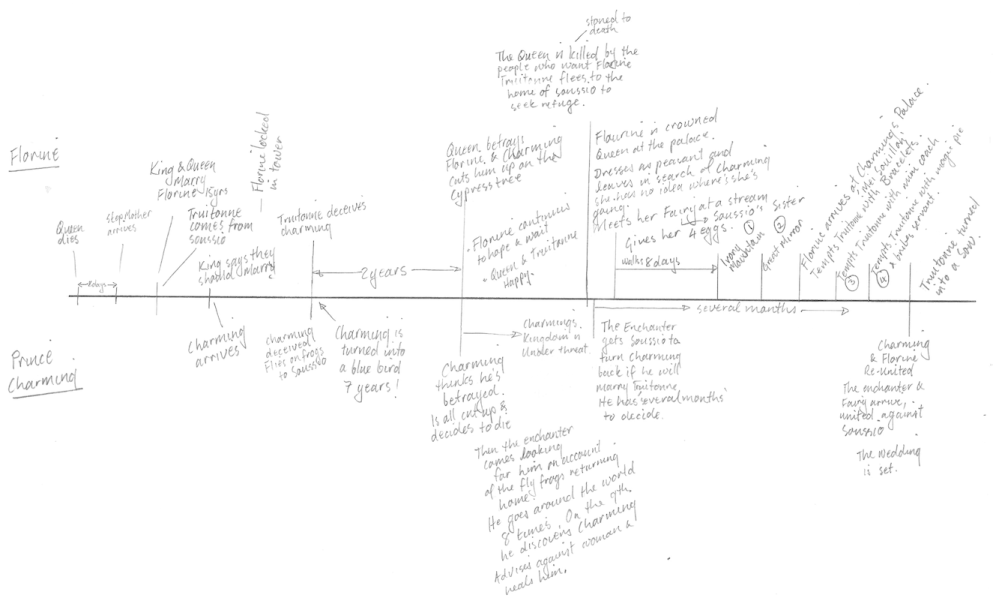 stoned to
death
The Queen is killed by the
people who want Florine
Truitonne flees to the
home of soussio to
seek refuge.
Florine
Queen
dies
stepMother
arrives
8days
King & Queen
Marry
Florine 15yrs
Truitonne
comes from
soussio
King says they
should Marry
Florine locked
in tower
Truitonne deceives
charming
2 years
Queen betrays
Florine & Charming
Cuts him up on the
Cypress tree
• Florine continues
to hope & wait
• Queen & Truitonne
Happy.
Flaurine is crowned
Queen at the palace.
Dresses as peasant and
leaves in search of Charming
she has no idea where she's
going.
Meets her Fairy at a stream
Soussio's Sister
Gives her 4 eggs.
walks 8 days
Ivory
Mountain
①
②
Great Mirror
Florine arrives at Charming's Palace.
Tempts Truitonne with Bracelets.
Tempts Truitonne with mini coach
③
Tempts Truitonne with magic pie
④
& bribes servant.
Truitonne turned
into a sow.
several months
Prince
Charming
Charming
arrives
charming
deceived
Flies on frogs
to Soussio
Charming is
turned into
a blue bird
7 years!
Charming
thinks he's
betrayed.
Is all cut up &
decides to die
Charmings
Kingdom is
Under threat
Then the enchanter
comes looking
for him on account
of the fly frogs returning
home.
He goes around the world
8 times. On the 9th
he discovers Charming
Advises against woman &
heals him.
The Enchanter
gets Soussio to
turn Charming
back if he will
marry Truitonne
He has several months
to decide.
Charming
& Florine
Re-United
The enchanter &
Fairy arrive,
united against
Soussio
The Wedding
is set.